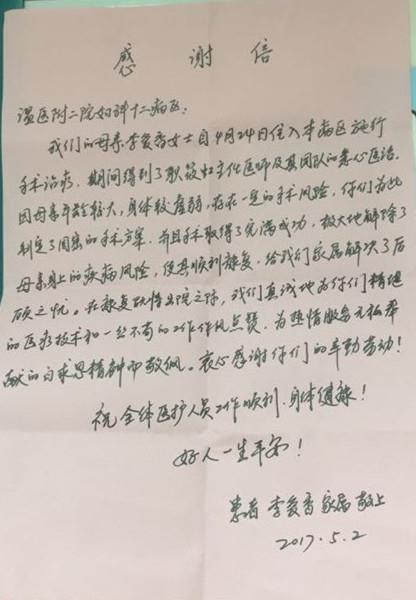 感谢信
温医附二院妇科十二病区:
我们的母亲李爱香女士自4月24日住入本病区施行
手术治疗.期间得到了 主任医师及其团队的悉心医治.
因母亲年龄较大,身体较虚弱,存在一定的手术风险,你们为此
制定了周密的手术方案.并且手术取得了完满成功,极大地解除了
母亲身上的疾病风险,使其顺利康复,给我们家属解决了后
顾之忧。在康复 出院之际,我们真诚地为你们精湛
的医疗技术和一丝不苟的工作作风点赞,为热情服务无私奉
献的白求恩精神而敬佩。衷心感谢你们的辛勤劳动!
祝全体医护人员工作顺利.身体健康!
好人一生平安!
患者 李爱香家属敬上
2017.5.2